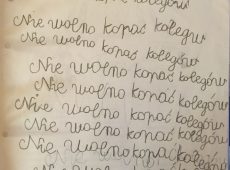 kolegów
Nie wolno kopać kolegów
Nie wolno kopać kolegów
Nie wolno kopać kolegów
Nie wolno kopać kolegów
Nie wolno kopać kolegów
Nie wolno kopać kolegów
Nie wolno kopać kolegów